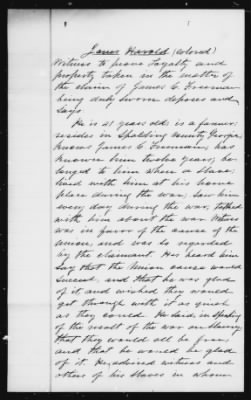 James Harrold (colored)
Witness to prove loyalty and
property taken in the matter of
the claim of James C. Freeman
being duly sworn deposes and
says
He is 21 years old; is a farmer;
resides in Spalding County Georgia;
knows James C. Freeman, has
known him twelve years; be-
longed to him when a slave;
lived with him at his home
place during the war; saw him
every day during the war; talked
with him about the war. Witness
was in favor of the cause of the
Union, and was so regarded
by the claimant. Has heard him
say that the Union cause would
succeed, and that he was glad
of it, and wished they would
get through with it as quick
as they could. He said, in speaking
of the result of the war on slavery
that they would all be free,
and that he would be glad
of it. He advised witness and
others of his slaves in whom